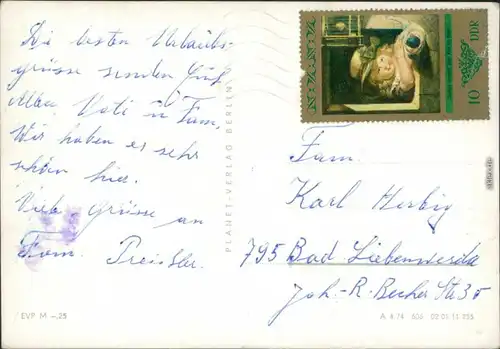 Die besten Urlaubs-
grüsse senden Euch
Allen Vati u Fam,
Wir haben es sehr
schön hier.
Viele Grüsse an
Fam. Preissler.
PLANET-VERLAG BERLIN
DDR
10
Fam.
Karl Herbig
795 Bad Liebenwerda
Joh.-R. Becher Str. 35
EVP M -,25
A 4/74 606 02 01 11 235